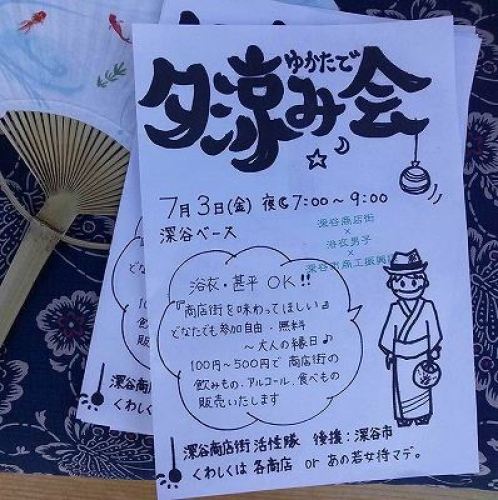 ゆかたで
夕涼み会
7月3日(金) 夜6 7:00～9:00
深谷ベース
深谷商店街
×
浴衣男子
×
深谷市商工振興
浴衣・甚平 OK!!
『商店街を味わってほしい』
どなたでも参加自由・無料
～大人の縁日♪
100円～500円で 商店街の
飲みもの、アルコール、食べもの
販売いたします
深谷商店街 活性隊 後援：深谷市
くわしくは 各商店 or あの若女侍マデ。
浴衣
『商店
どなた
100円
飲み
販売
深谷商店
くわしく